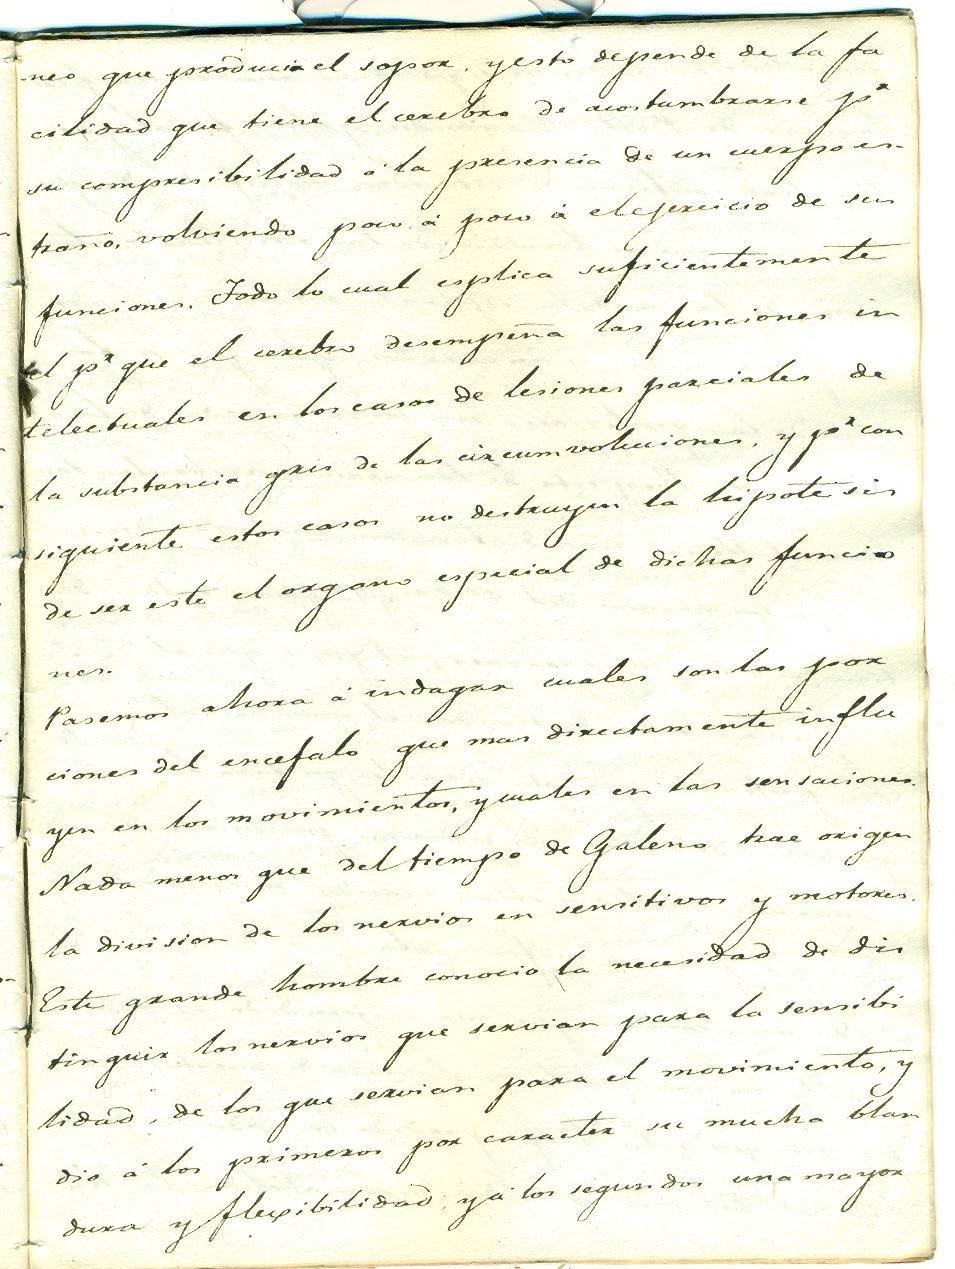 neo que producia el sopor, y esto depende de la fa
cilidad que tiene el cerebro de acostumbrarse pr
su compresibilidad á la presencia de un cuerpo es-
traño, volviendo poco á poco á el ejercicio de sus
funciones. Todo lo cual esplica suficientemente
el pr que el cerebro desempeña las funciones in
telectuales en los casos de lesiones parciales de
la substancia gris de las circumvoluciones, y pr con
siguiente estos casos no destruyen la hipotesis
de ser este el organo especial de dichas funcio
nes.
Pasemos ahora á indagar cuales son las por
ciones del encefalo que mas directamente influ
yen en los movimientos, y cuales en las sensaciones.
Nada menos que del tiempo de Galeno trae origen
la division de los nervios en sensitivos y motores.
Este grande hombre conocio la necesidad de dis
tinguir los nervios que servian para la sensibi
lidad, de los que servian para el movimiento, y
dio á los primeros por caracter su mucha blan
dura y flexibilidad, y á los segundos una mayor